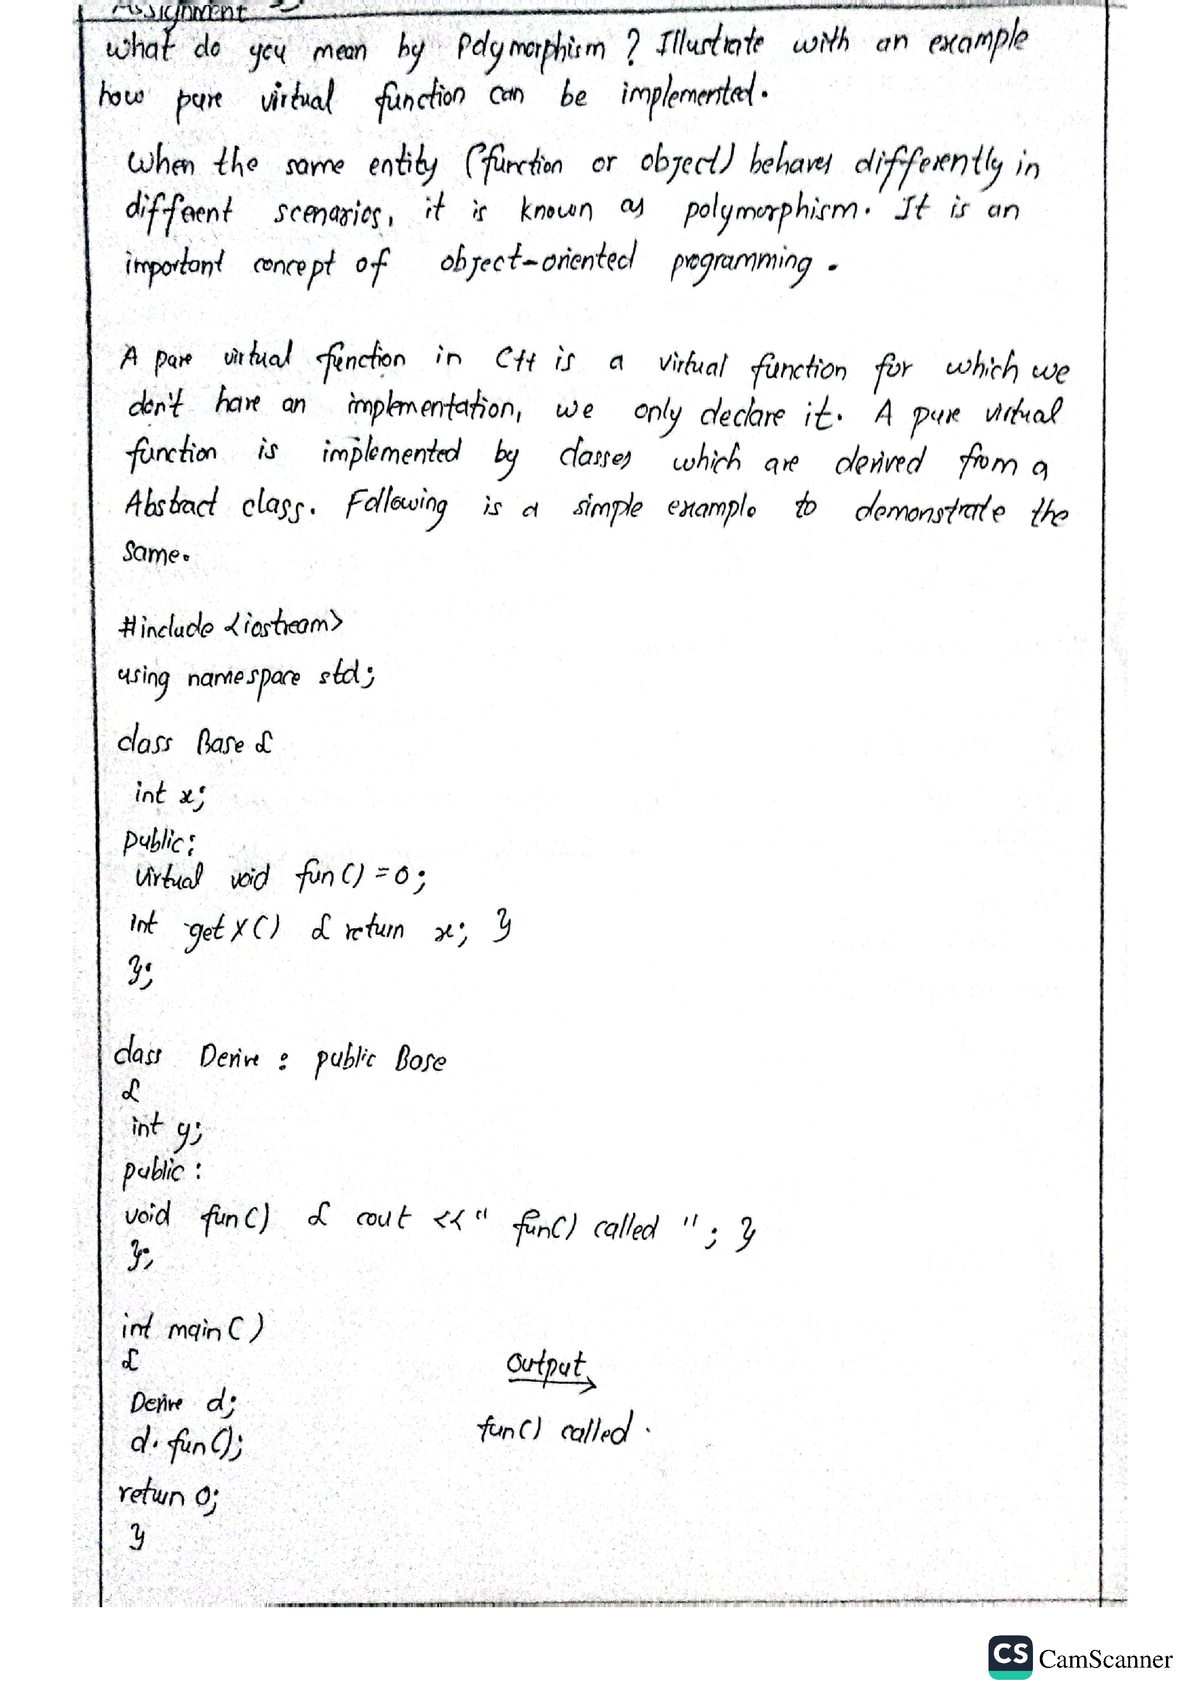 Assignment
what do you mean by Polymorphism ? Illustrate with an example
how pure virtual function can be implemented.
When the same entity (function or object) behaves differently in
different scenarios, it is known as polymorphism. It is an
important concept of object-oriented programming.
A pure virtual function in C++ is a virtual function for which we
don't have an implementation, we only declare it. A pure virtual
function is implemented by classes which are derived from a
Abstract class. Following is a simple example to demonstrate the
same.
#include <iostream>
using namespace std;
class Base {
int x;
public:
virtual void fun() = 0;
int getX() { return x; }
};
class Derive : public Base
{
int y;
public :
void fun() { cout << " fun() called " ; }
};
int main()
{
Output
Derive d;
fun() called.
d. fun();
return 0;
}
CS CamScanner